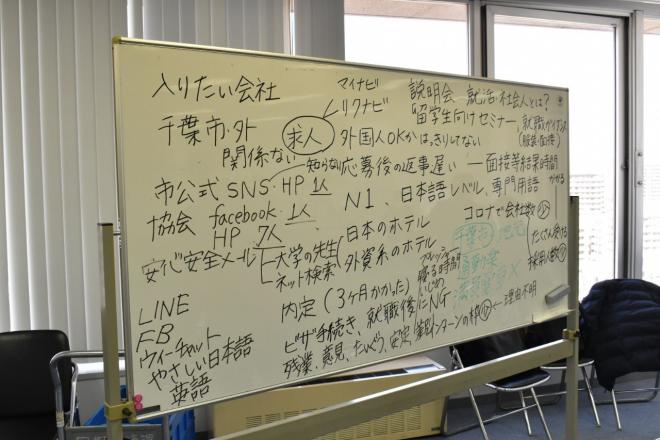 入りたい会社
マイナビ
リクナビ
説明会 就活・社会人とは?
留学生向けセミナー、就職ガイダンス
(服装・面接)
千葉市・外
関係ない
求人
外国人OKかはっきりしてない
知らない
応募後の返事遅い
面接等結果時間
かかる
市公式SNS・HP 1人
N1、日本語レベル、専門用語
協会 facebook・1人
HP 7人
コロナで会社数少
たくさん受ける
採用人数少
安心安全メール
大学の先生
ネット検索
日本のホテル
外資系のホテル
千葉市
LINE
FB
ウィーチャット
やさしい日本語
英語
内定(3ヶ月かかった)
プレッシャー
寝る時間
いじめ
ビザ手続き、就職後にNG
残業、意見、
インターンの枠少←理由不明